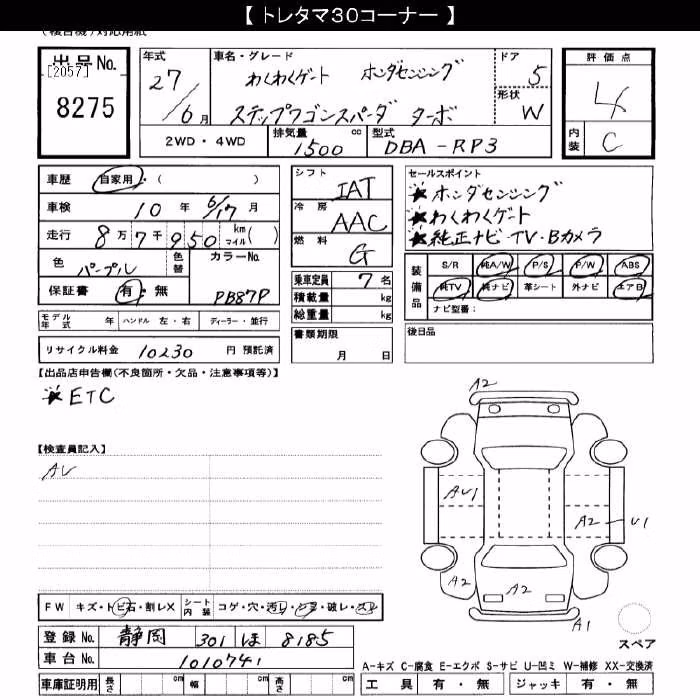 【 トレタマ30コーナー 】
(複合機)対応用紙
出品No.
[2057]
8275
年式
27/6月
車名・グレード
わくわくゲート ホンダセンシング
ステップワゴンスパーダ ターボ
ドア
5
形状
W
評価点
4
内装
C
2WD・4WD
排気量
1500 cc
型式
DBA-RP3
車歴 自家用・( )
車検 10年 6/17月
走行 8万7千950 km マイル( )
色 パープル
色替
カラーNo.
PB87P
保証書 有・無
モデル年式 年 ハンドル 左・右 ディーラー・並行
リサイクル料金 10230 円 預託済
シフト
IAT
冷房
AAC
燃料
G
乗車定員 7名
積載量 kg
総重量 kg
書類期限
月 日
セールスポイント
★ホンダセンシング
★わくわくゲート
★純正ナビ・TV・Bカメラ
装備品
S/R 純A/W P/S P/W ABS
純TV 純ナビ 革シート 外ナビ エアB
ナビ型番:
後日品
【出品店申告欄(不良箇所・欠品・注意事項等)】
★ETC
【検査員記入】
AU
A2
AU1
A2 U1
A2
A2
A1
スペア
FW キズ・トビ石・割レX シート内装 コゲ・穴・汚レ・シミ・破レ・スレ
登録No. 静岡 301 ほ 8185
車台No. 1010741
車庫証明用 長さ cm 幅 cm 高さ cm
A-キズ C-腐食 E-エクボ S-サビ U-凹ミ W-補修 XX-交換済
工具 有・無 ジャッキ 有・無